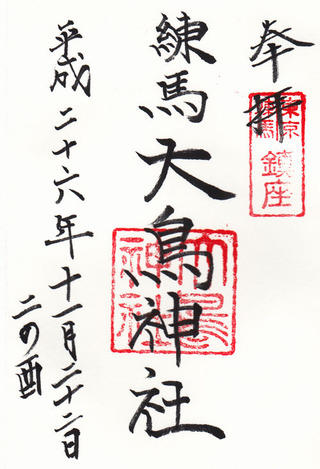 奉拝
東京
練馬
鎮座
練馬大鳥神社
大鳥
神社
平成二十六年十一月二十二日
二の酉